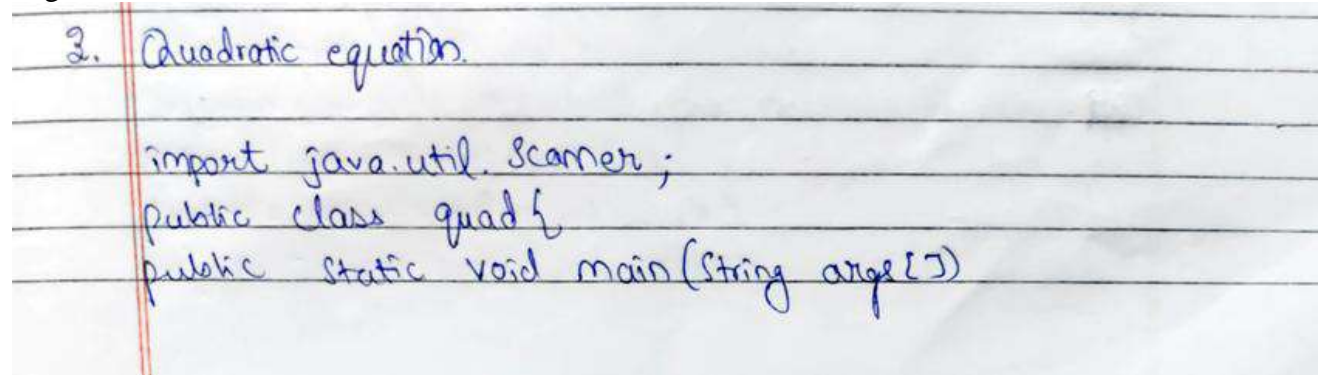 2. Quadratic equation.
import java.util.Scanner;
public class quad{
public static void main(String args[])